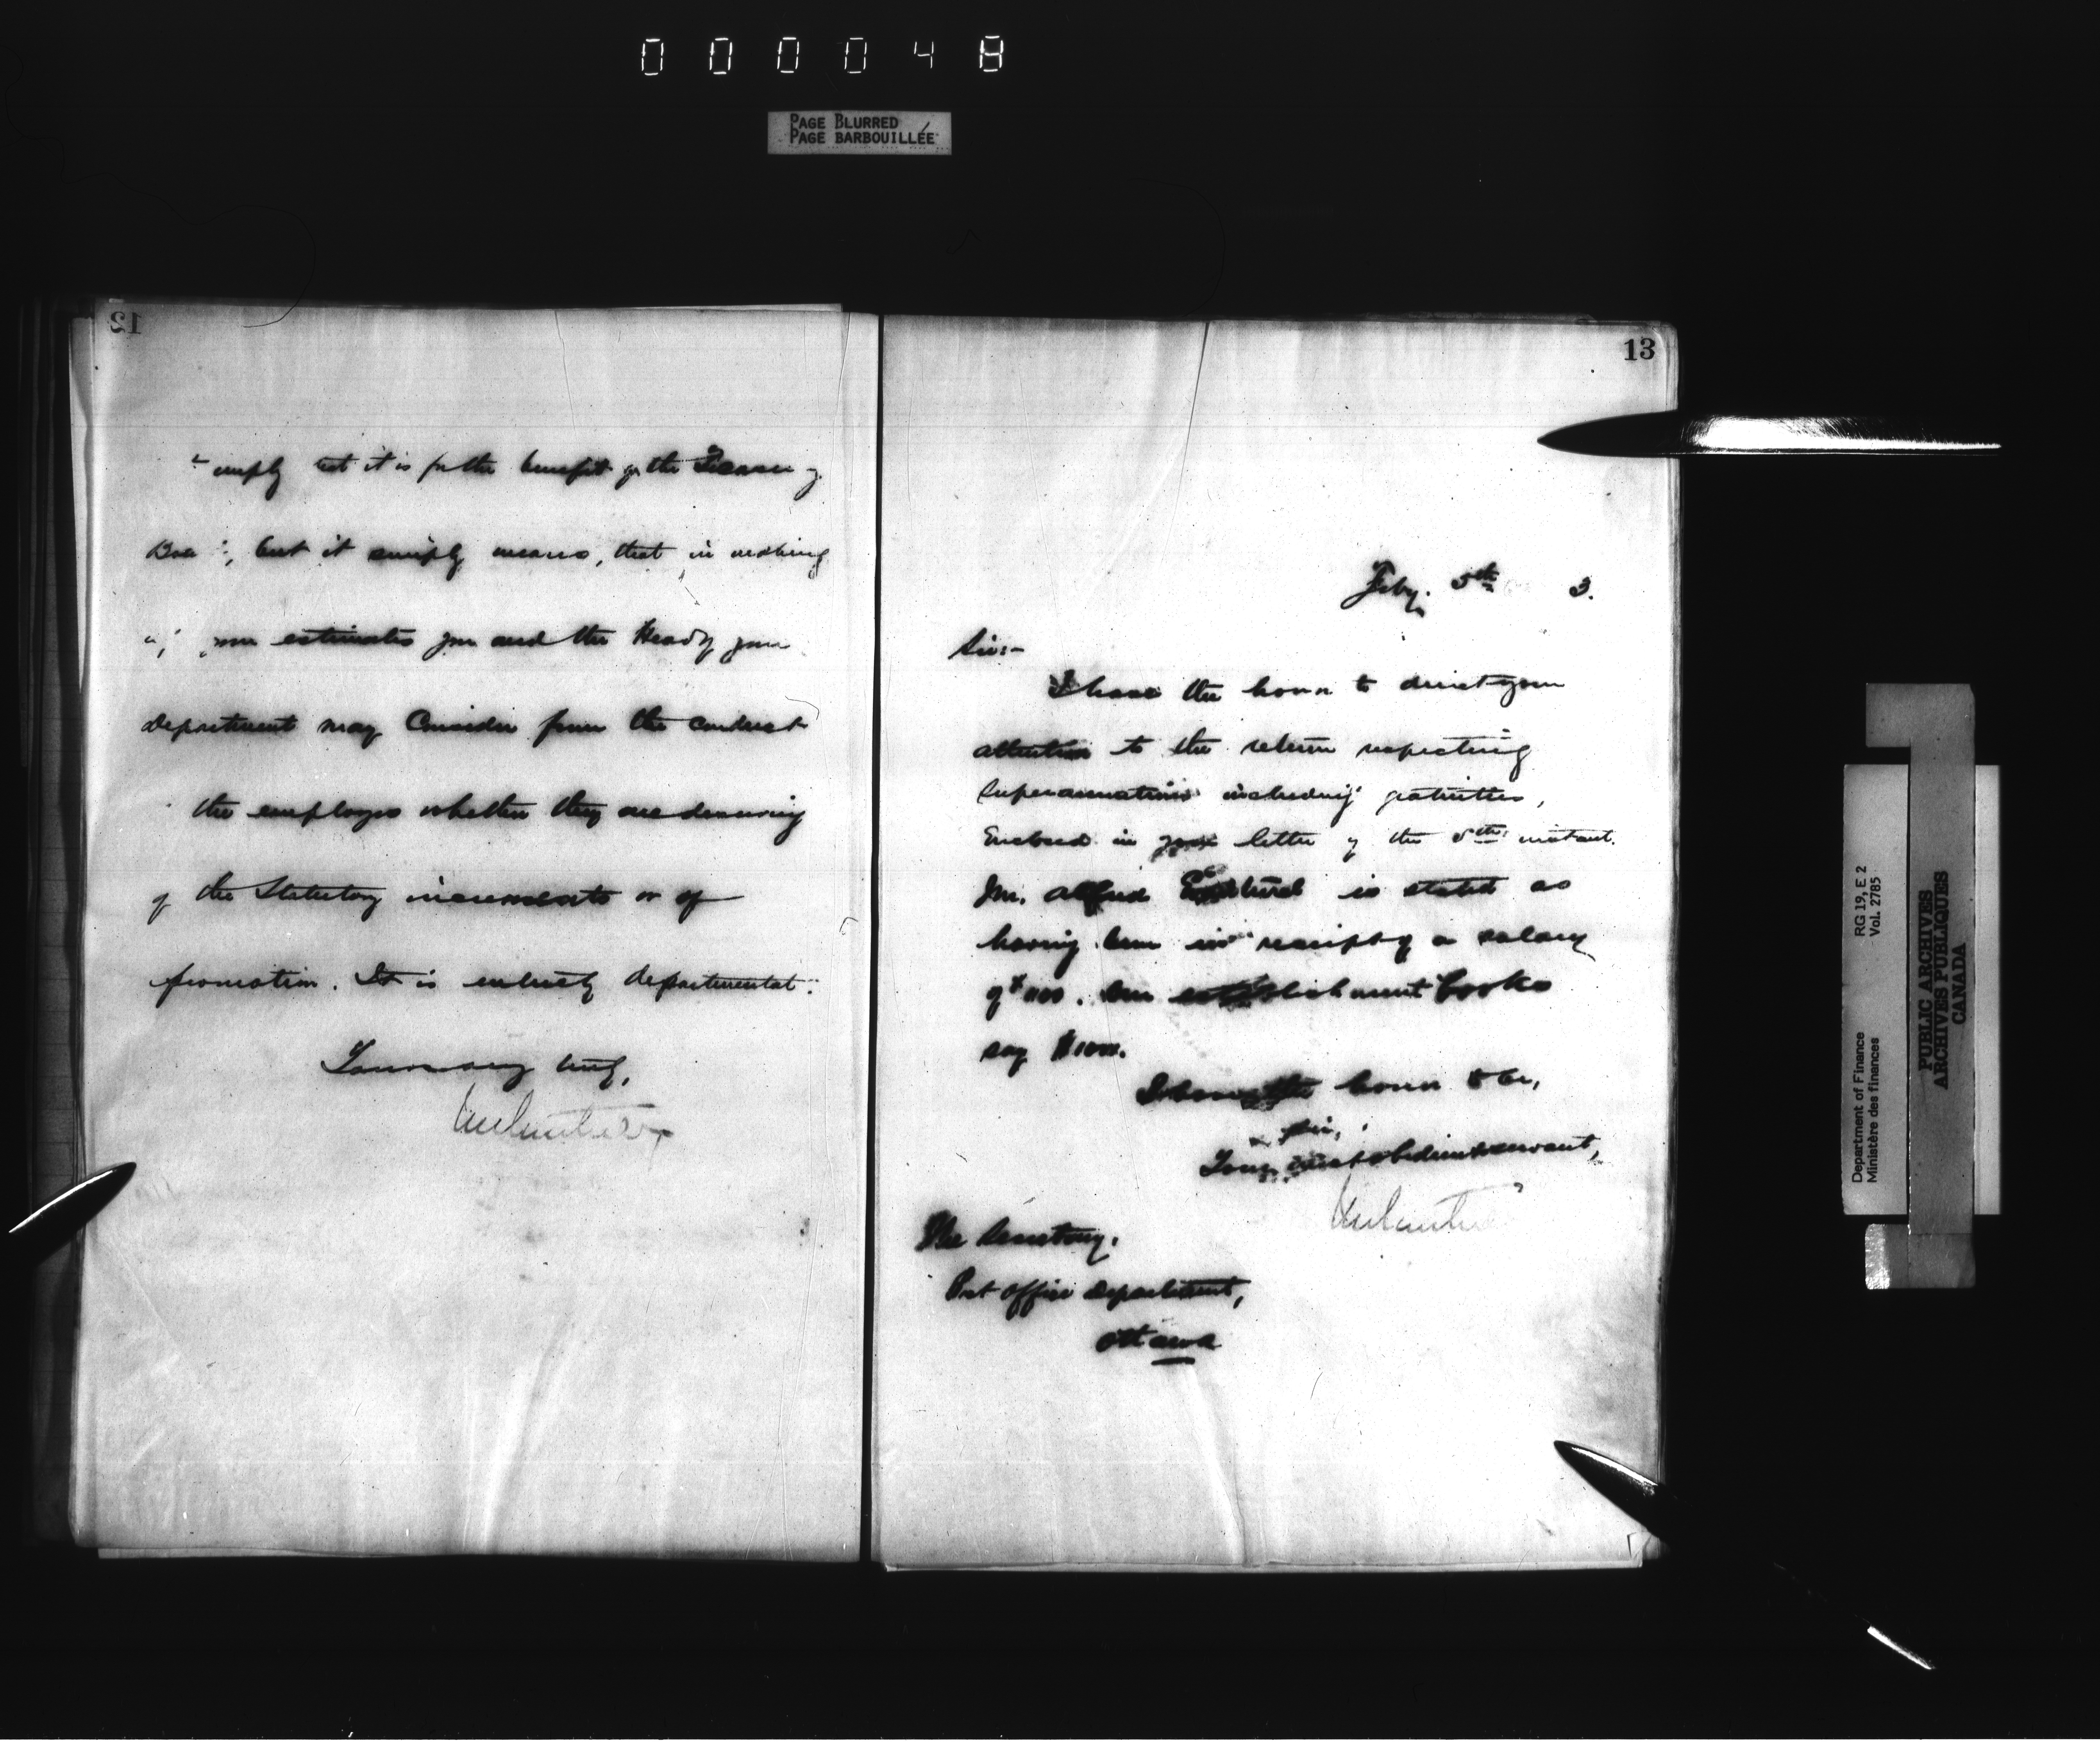 000048
PAGE BLURRED
PAGE BARBOUILLÉE
12
imply that it is for the benefit of the Treasury
but it simply means, that in making
your estimates you and the Head of your
department may consider from the conduct
the employees whether they are deserving
of the Statutory increments or of
promotion. It is entirely departmental.
Yours very truly,
13
Feby. 5th 3.
Sir:-
I have the honor to direct your
attention to the return respecting
Superannuations including gratuities,
Enclosed in your letter of the 5th instant.
Mr. Alfred is stated as
having been in receipt of a salary
of $1100. Our establishment books
say
I have the honor to be,
Sir,
Your most obedient servant,
The Secretary,
Post Office Department,
Ottawa
Department of Finance
Ministère des finances
RG 19, E 2
Vol. 2785
PUBLIC ARCHIVES
ARCHIVES PUBLIQUES
CANADA